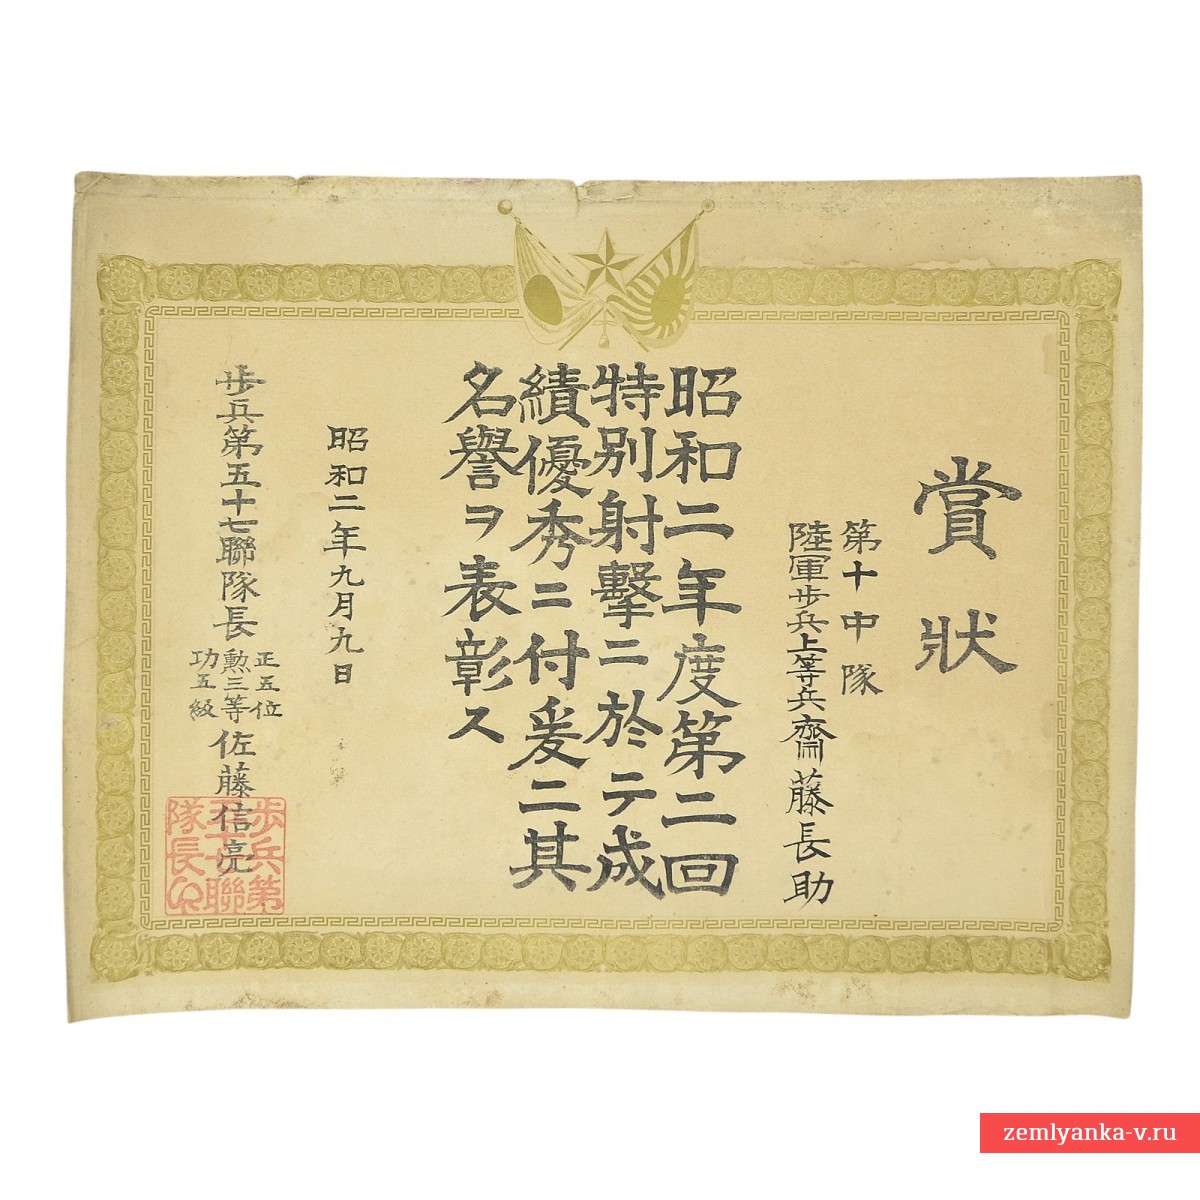 賞狀
第十中隊
陸軍歩兵上等兵齋藤長助
昭和二年度第二回
特別射擊ニ於テ成
績優秀ニ付爰ニ其
名譽ヲ表彰ス
昭和二年九月九日
歩兵第五十七聯隊長
正五位
勲三等
功五級
佐藤信亮
歩兵第
五十七聯
隊長印
zemlyanka-v.ru